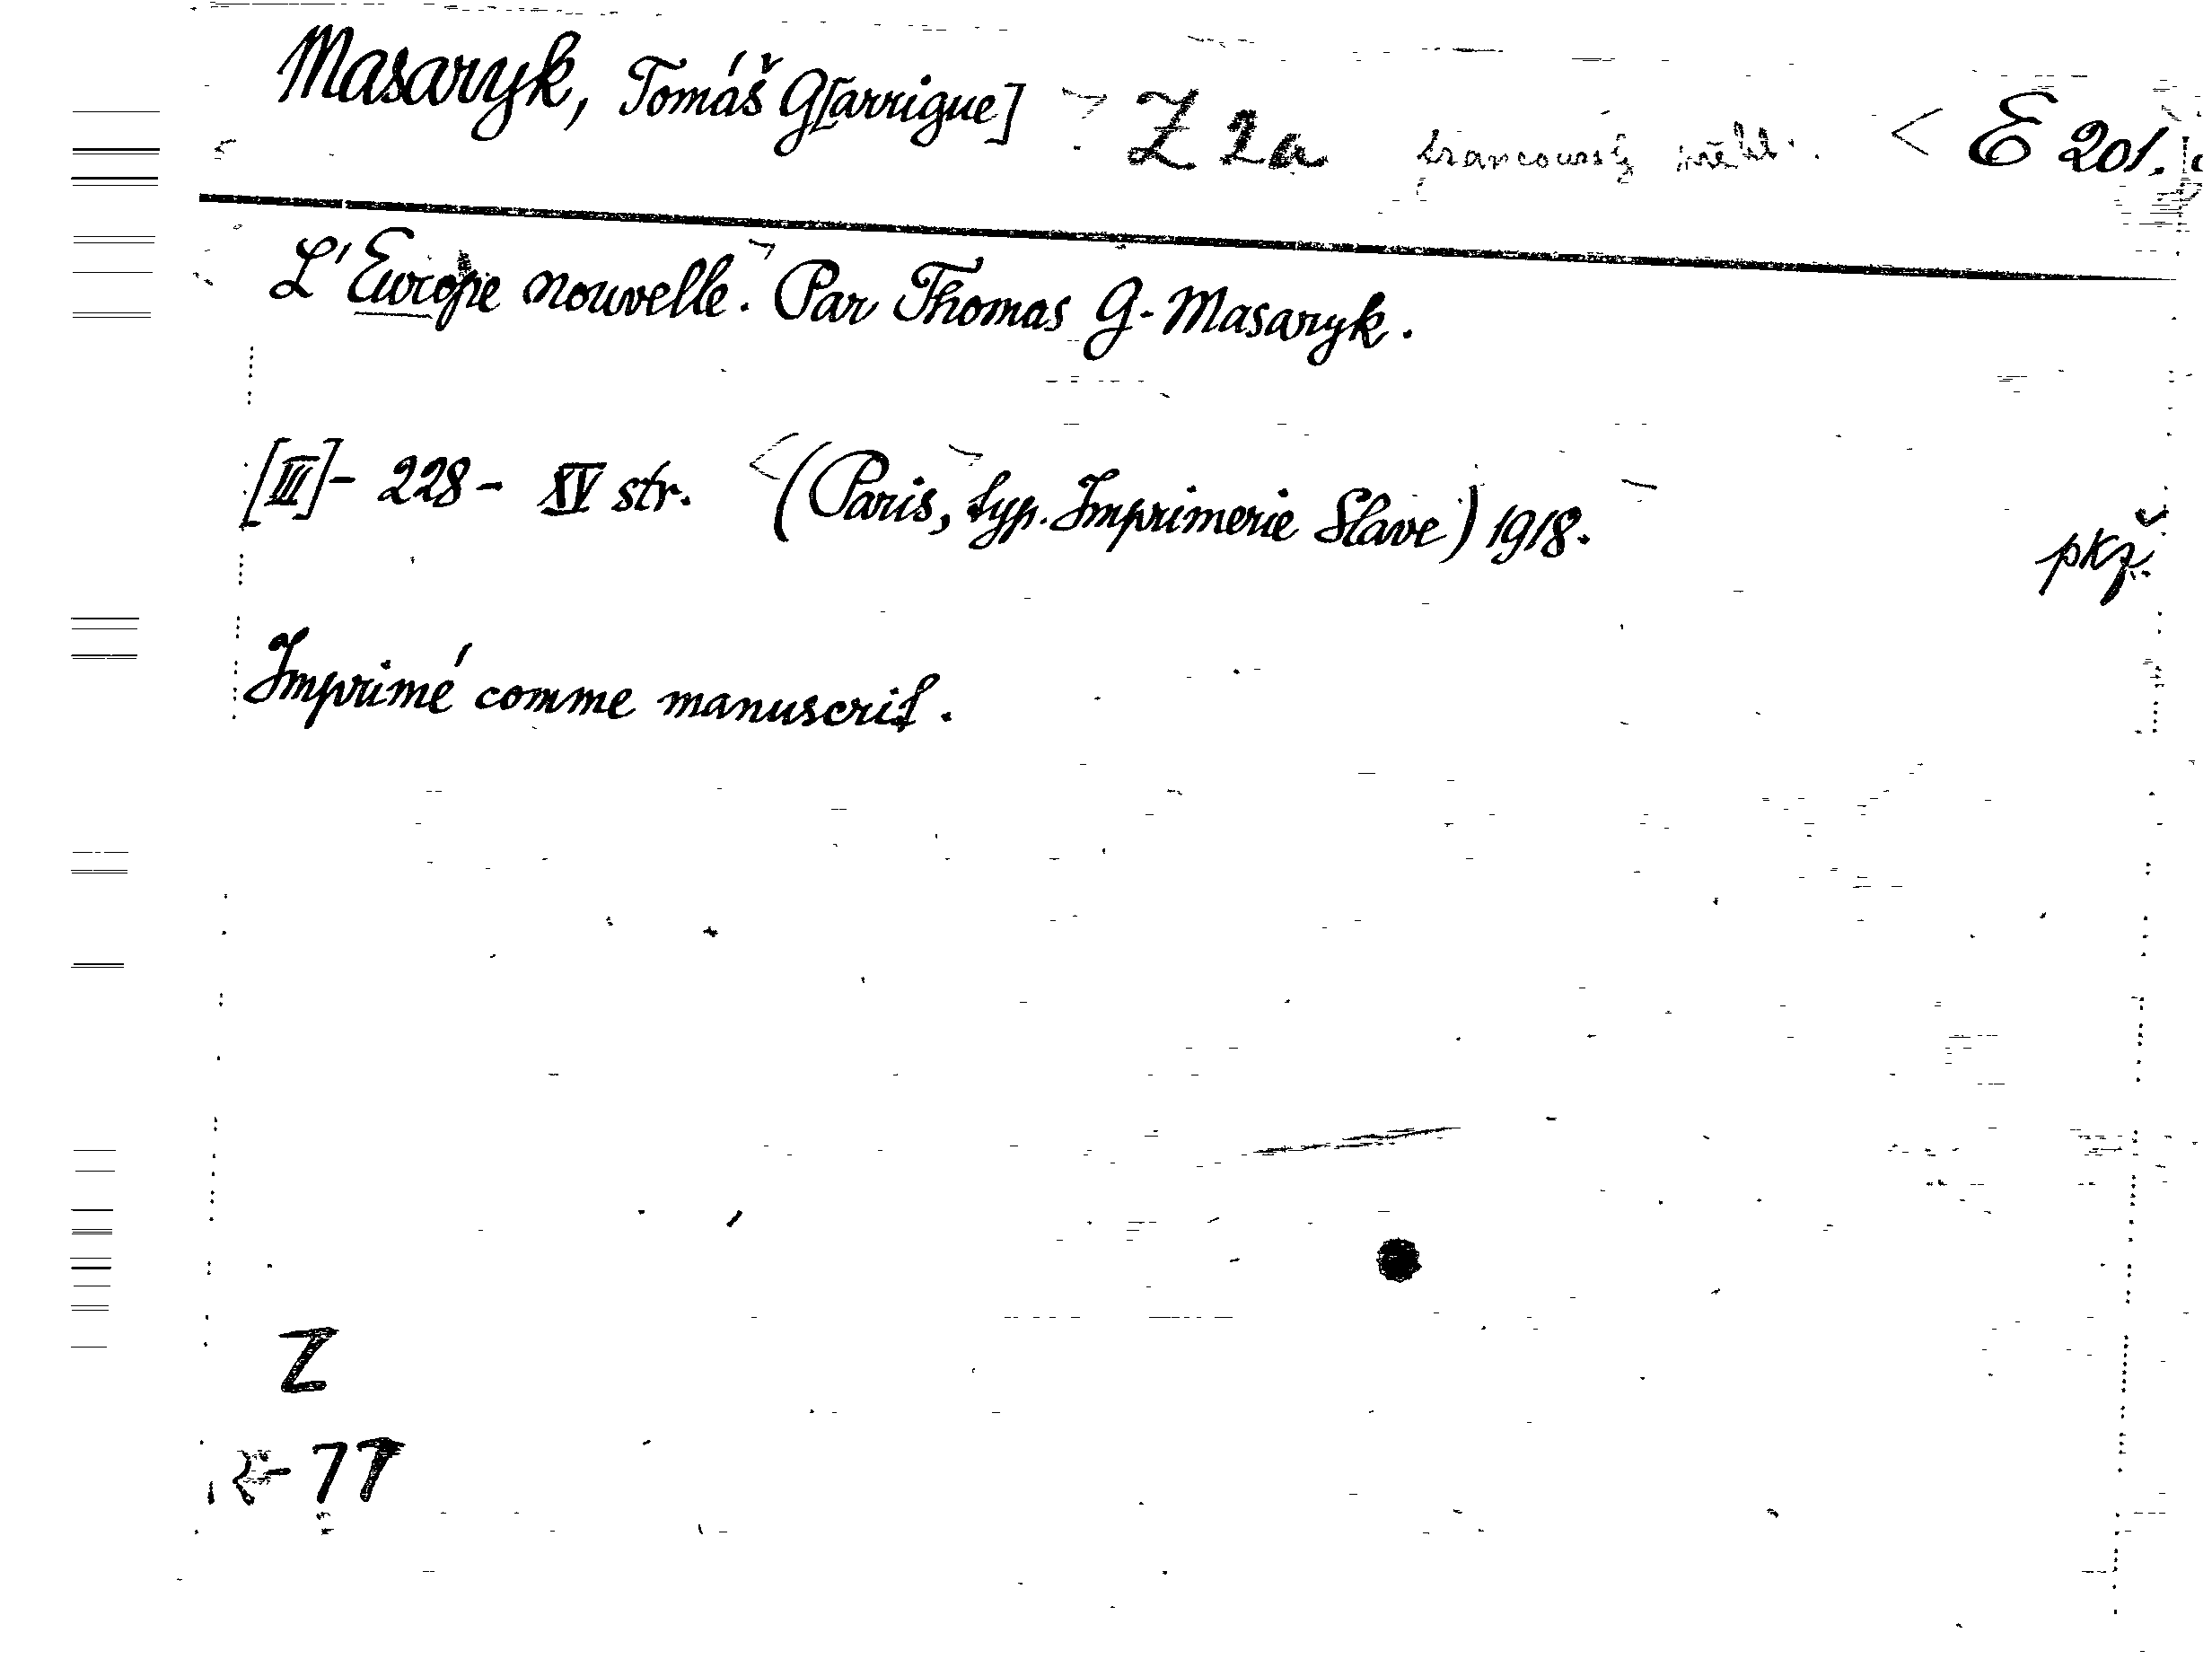 Masaryk, Tomáš G[arrigue] Z 2a francouzsky < E 201.
L'Europe nouvelle. Par Thomas G. Masaryk.
[III]- 228- XV str. (Paris, typ. Imprimerie Slave) 1918.
pkž.
Imprimé comme manuscrit.
Z
-77